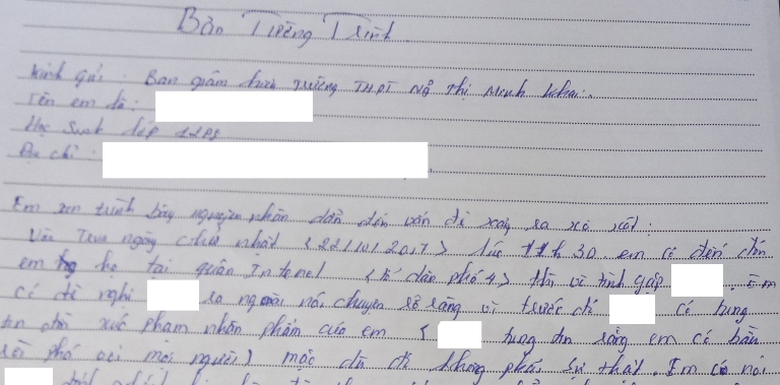 Bản Tường Trình
Kính gửi: Ban giám hiệu Trường THPT Ng Thị Minh Khai.
Tên em là:
Học sinh lớp 12P8
Địa chỉ:
Em xin trình bày nguyên nhân dẫn đến vấn đề xảy ra xô xát:
Vào Trưa ngày chủ nhật <22/10/2017> lúc 11h30. em có đến đón
em họ tại quán Internet <tổ dân phố 4> thì vì tình gặp . Em
có đề nghị ra ngoài nói chuyện rõ ràng vì trước đó có tung
tin đồn xúc phạm nhân phẩm của em ( tung tin rằng em có bầu
rồi phá với mọi người) mặc dù đó không phải sự thật. Em có nói